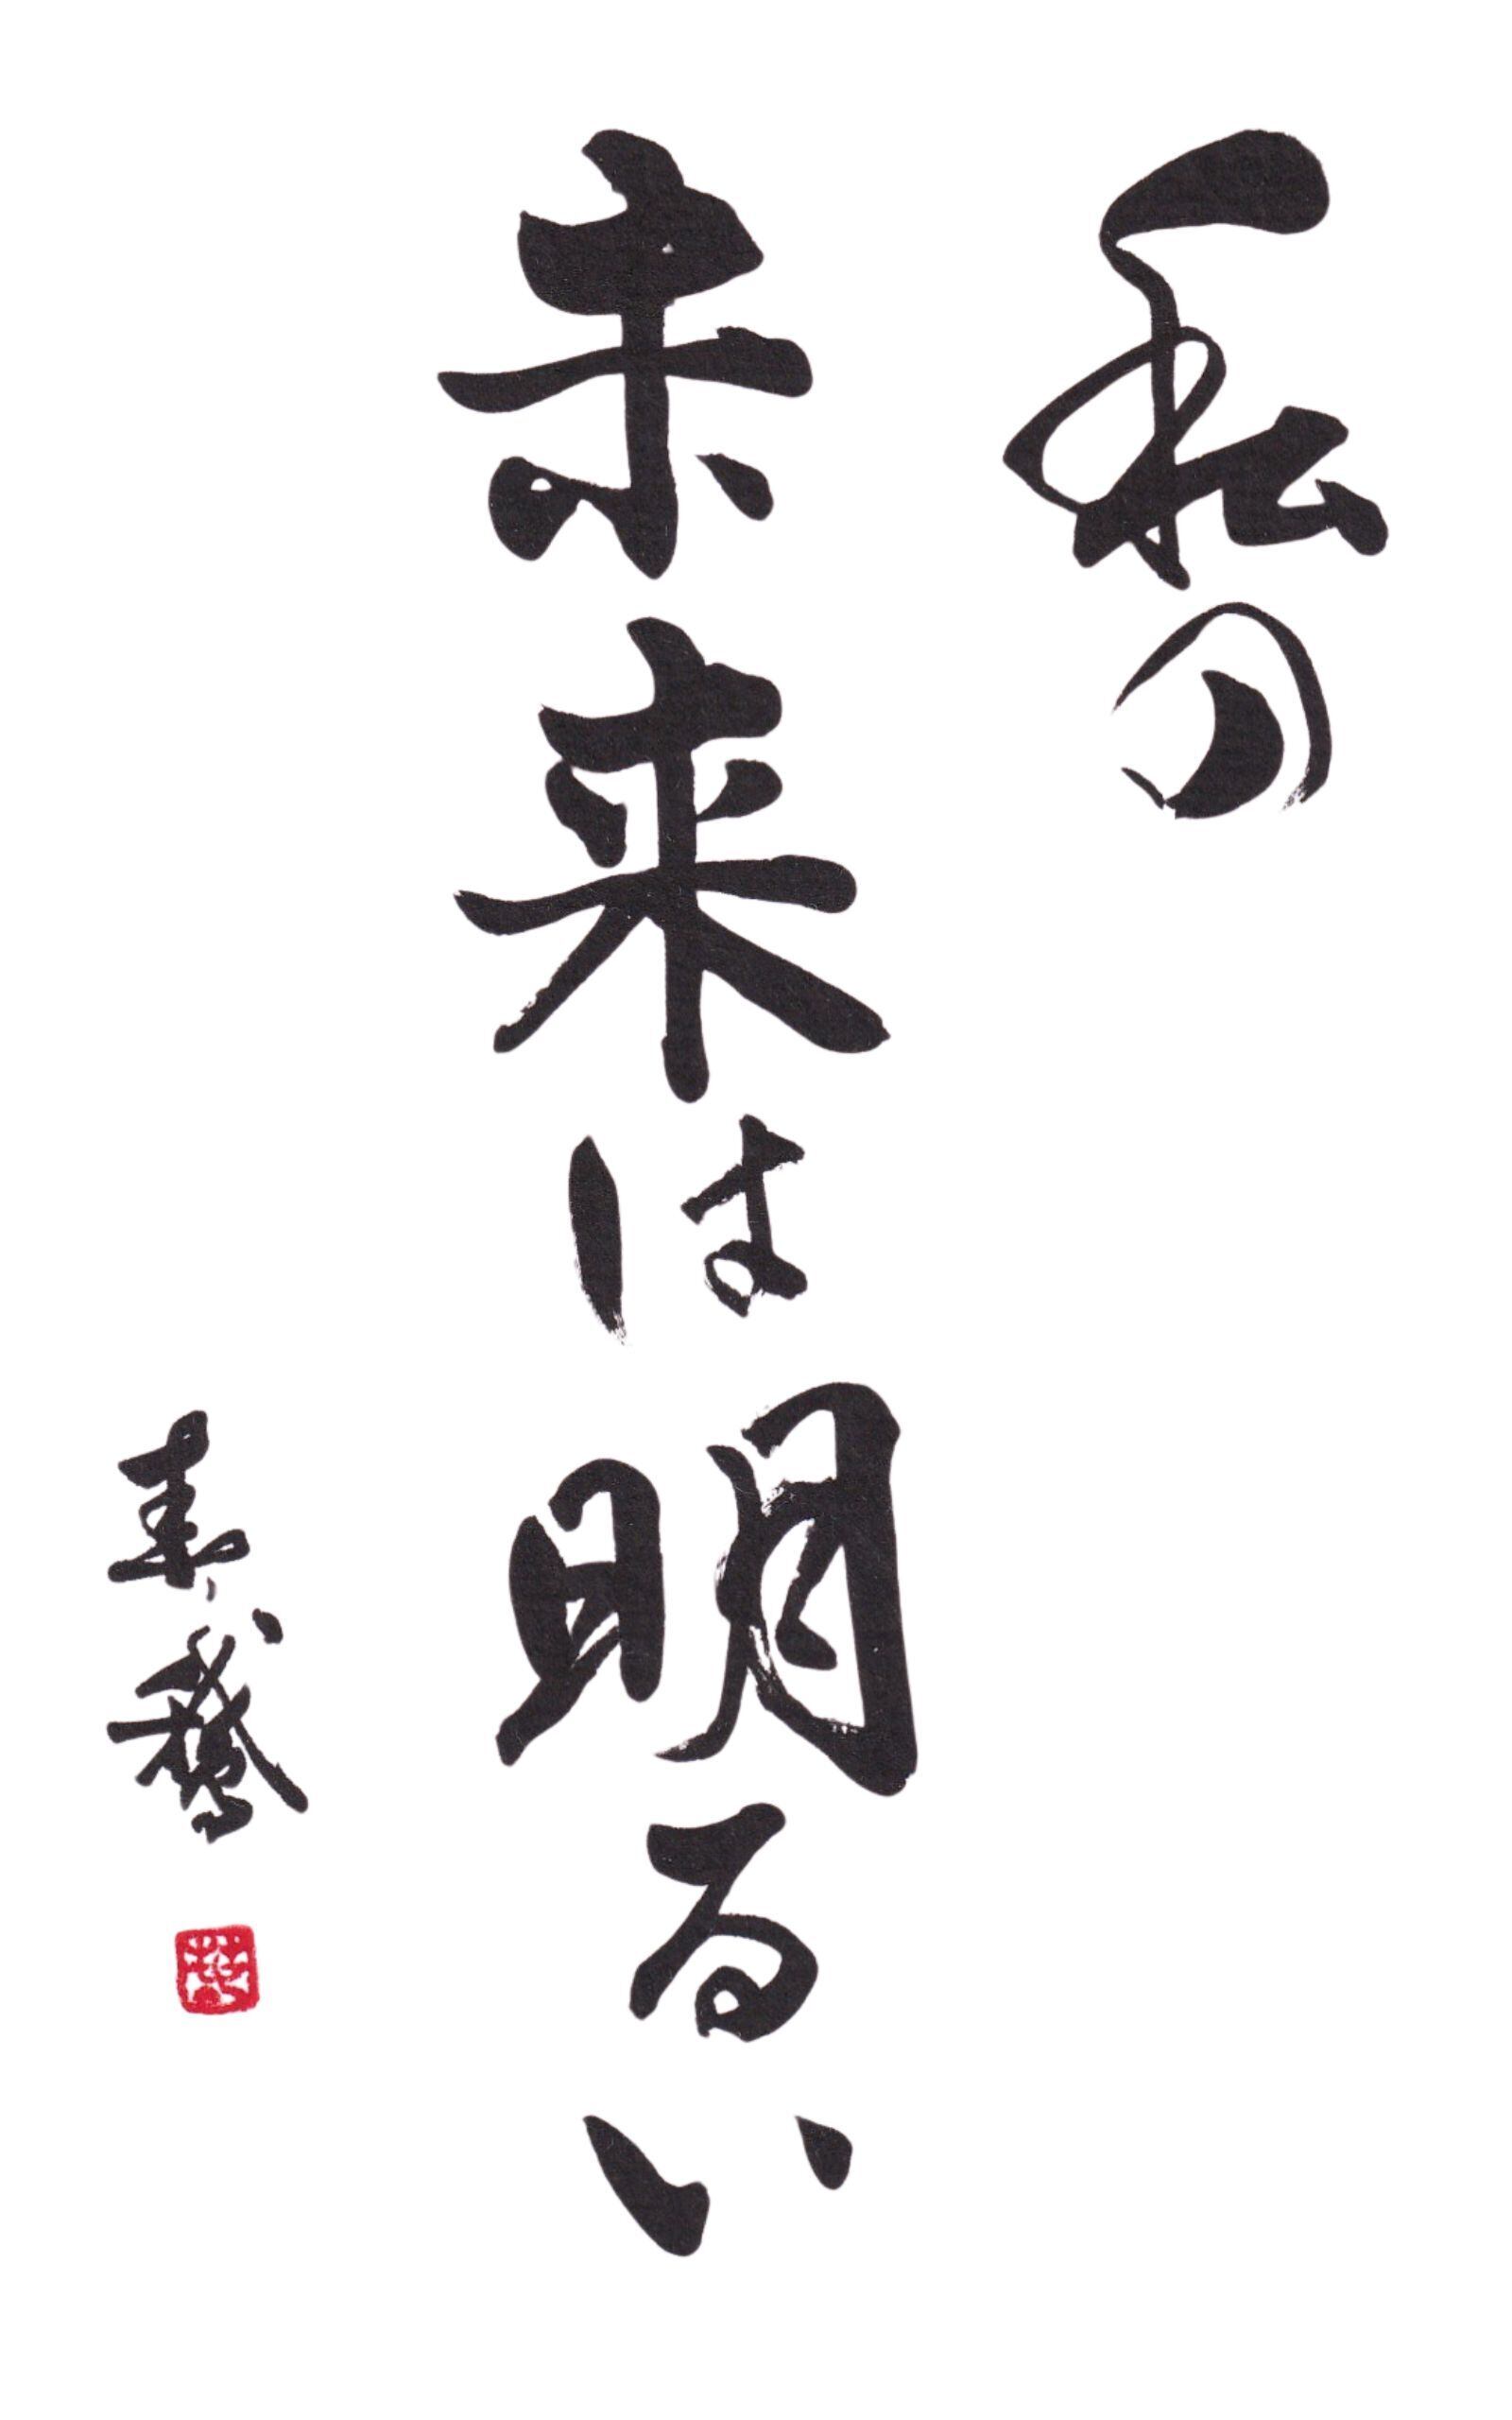 私の
未来は明るい
春鵞